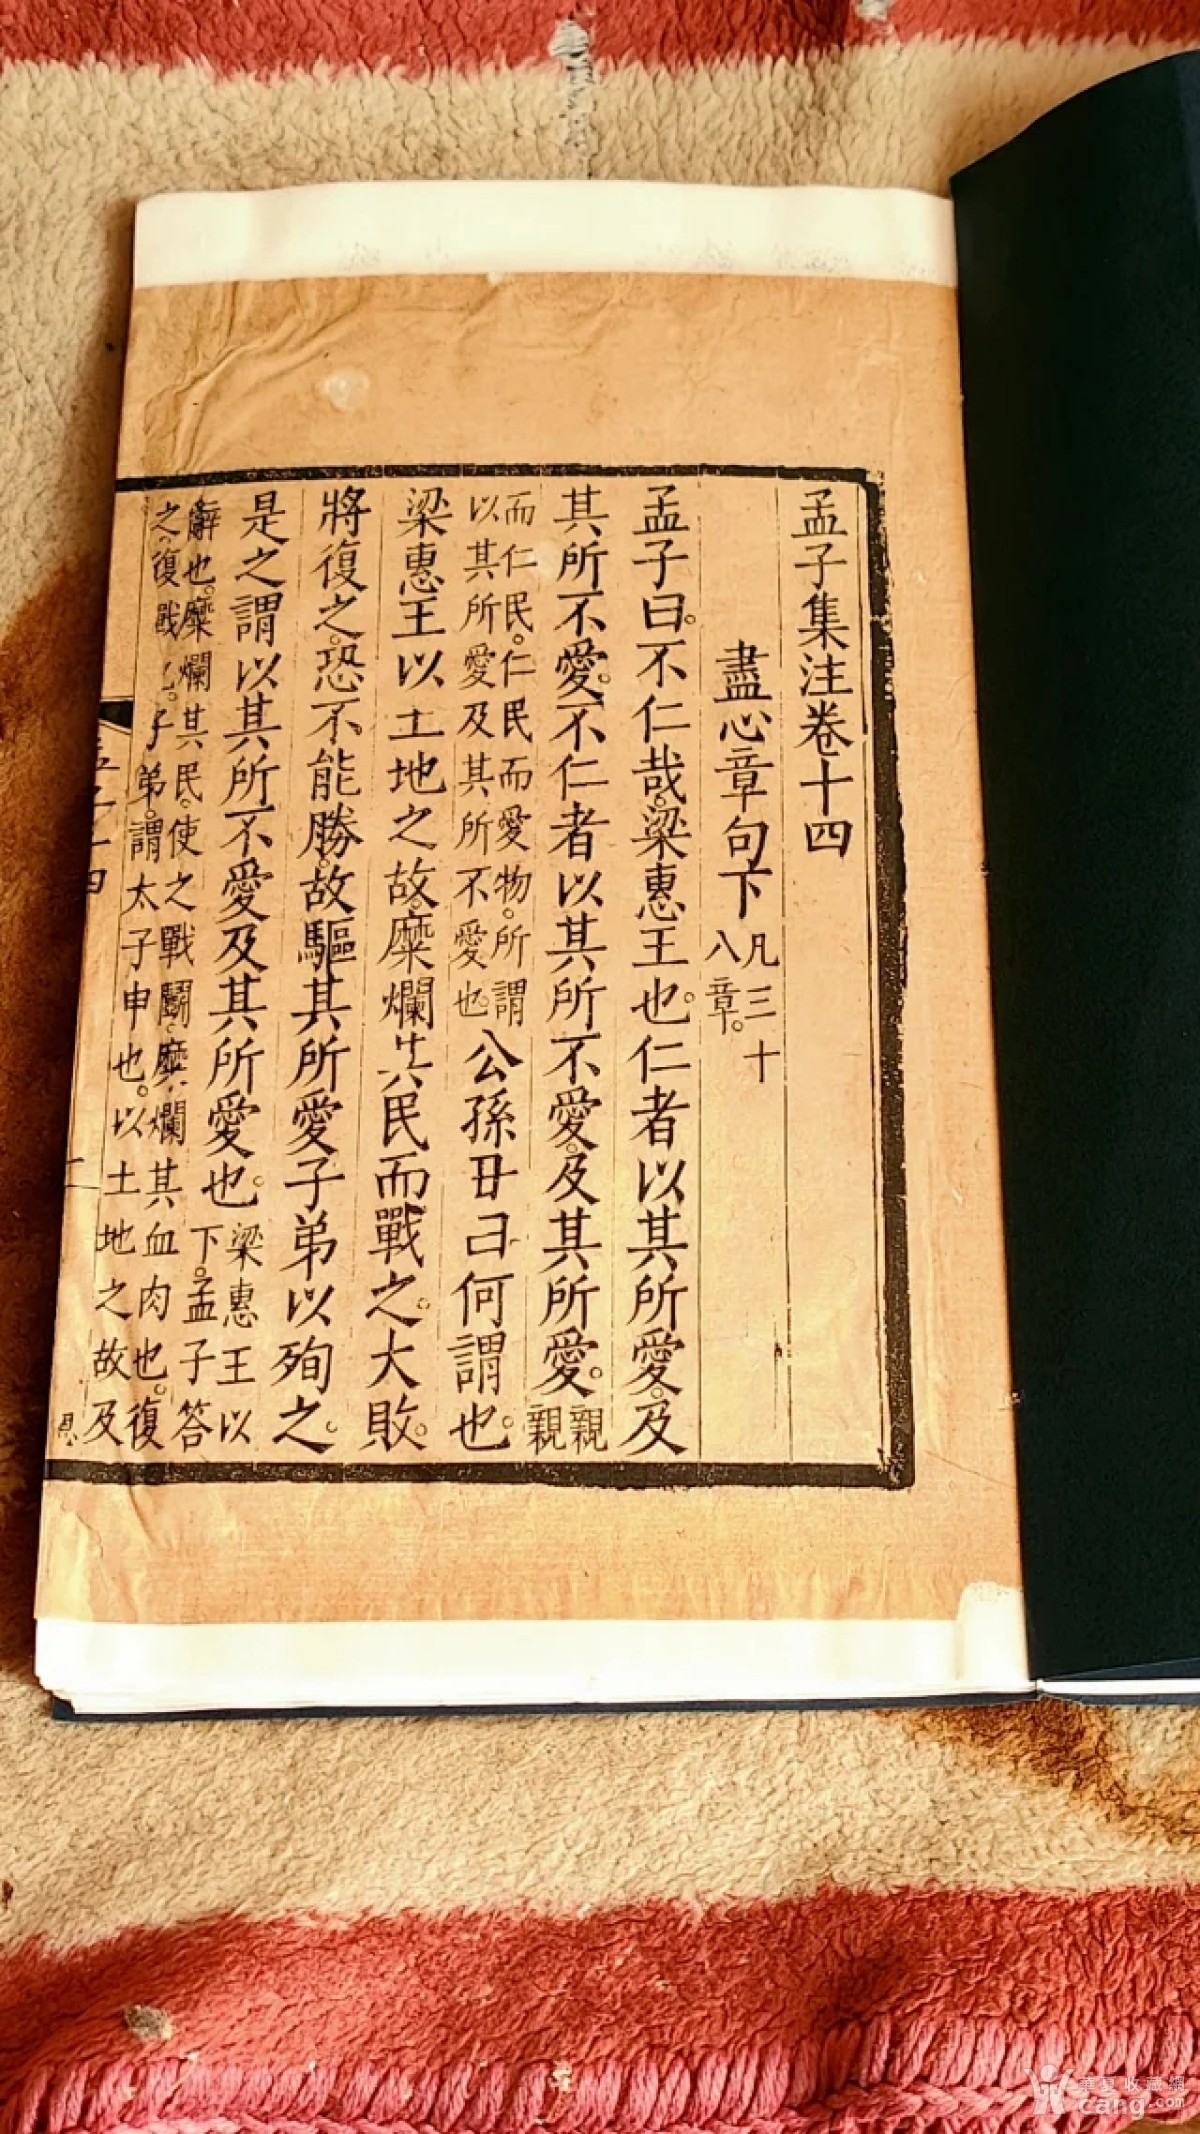 孟子集注卷十四
盡心章句下 凡三十八章。
孟子曰。不仁哉。梁惠王也。仁者以其所愛。及
其所不愛。不仁者以其所不愛。及其所愛。親親
而仁民。仁民而愛物。所謂以其所愛及其所不愛也。公孫丑曰何謂也。
梁惠王以土地之故。糜爛其民而戰之。大敗。
將復之。恐不能勝。故驅其所愛子弟以殉之。
是之謂以其所不愛及其所愛也。梁惠王以下。孟子答
辭也。糜爛其民。使之戰鬭。糜爛其血肉也。復之。復戰也。子弟。謂太子申也。以土地之故及
華夏收藏網
cang.com